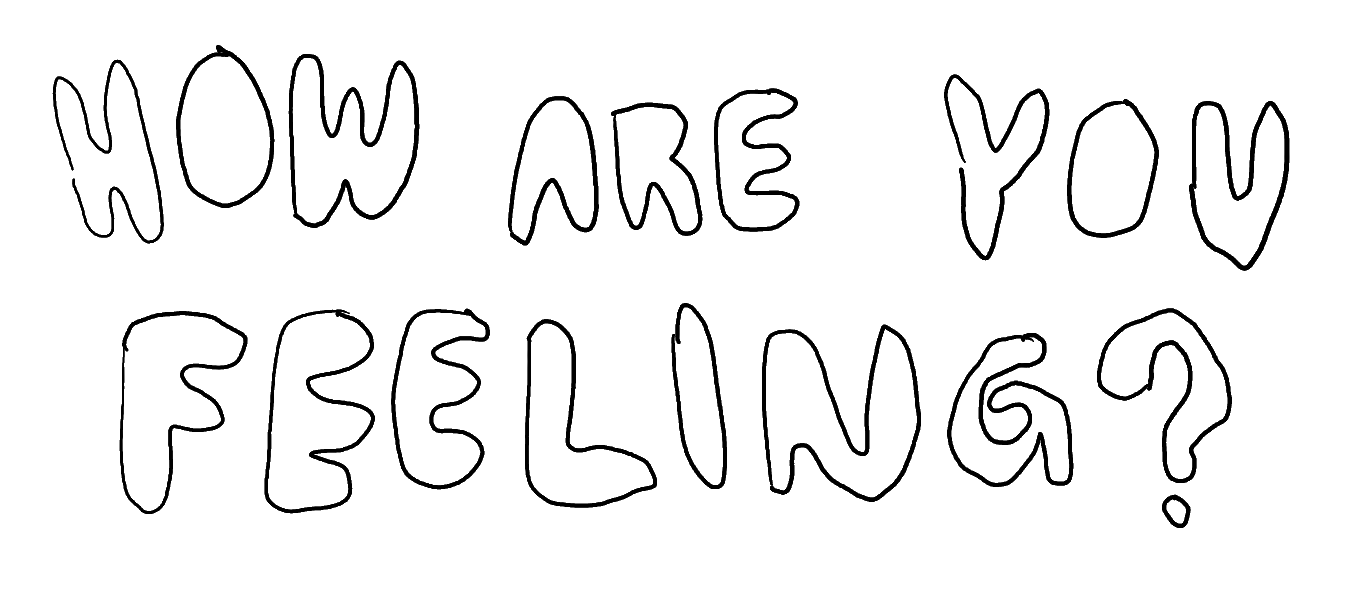 HOW ARE YOU
FEELING?